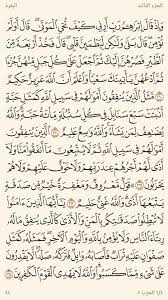 الجزء الثالث
البقرة
وَإِذْ قَالَ إِبْرَٰهِـۧمُ رَبِّ أَرِنِى كَيْفَ تُحْىِ ٱلْمَوْتَىٰ قَالَ أَوَلَمْ
تُؤْمِن قَالَ بَلَىٰ وَلَـٰكِن لِّيَطْمَئِنَّ قَلْبِى قَالَ فَخُذْ أَرْبَعَةً مِّنَ
ٱلطَّيْرِ فَصُرْهُنَّ إِلَيْكَ ثُمَّ ٱجْعَلْ عَلَىٰ كُلِّ جَبَلٍ مِّنْهُنَّ جُزْءًا
ثُمَّ ٱدْعُهُنَّ يَأْتِينَكَ سَعْيًا وَٱعْلَمْ أَنَّ ٱللَّهَ عَزِيزٌ حَكِيمٌ
٢٦٠ مَّثَلُ ٱلَّذِينَ يُنفِقُونَ أَمْوَٰلَهُمْ فِى سَبِيلِ ٱللَّهِ كَمَثَلِ حَبَّةٍ
أَنۢبَتَتْ سَبْعَ سَنَابِلَ فِى كُلِّ سُنۢبُلَةٍ مِّا۟ئَةُ حَبَّةٍ وَٱللَّهُ يُضَـٰعِفُ
لِمَن يَشَآءُ وَٱللَّهُ وَٰسِعٌ عَلِيمٌ ٢٦١ ٱلَّذِينَ يُنفِقُونَ
أَمْوَٰلَهُمْ فِى سَبِيلِ ٱللَّهِ ثُمَّ لَا يُتْبِعُونَ مَآ أَنفَقُوا۟ مَنًّا وَلَآ
أَذًى لَّهُمْ أَجْرُهُمْ عِندَ رَبِّهِمْ وَلَا خَوْفٌ عَلَيْهِمْ وَلَا هُمْ يَحْزَنُونَ
٢٦٢ قَوْلٌ مَّعْرُوفٌ وَمَغْفِرَةٌ خَيْرٌ مِّن صَدَقَةٍ
يَتْبَعُهَآ أَذًى وَٱللَّهُ غَنِىٌّ حَلِيمٌ ٢٦٣ يَـٰٓأَيُّهَا ٱلَّذِينَ ءَامَنُوا۟
لَا تُبْطِلُوا۟ صَدَقَـٰتِكُم بِٱلْمَنِّ وَٱلْأَذَىٰ كَٱلَّذِى يُنفِقُ مَالَهُۥ
رِئَآءَ ٱلنَّاسِ وَلَا يُؤْمِنُ بِٱللَّهِ وَٱلْيَوْمِ ٱلْـَٔاخِرِ فَمَثَلُهُۥ كَمَثَلِ
صَفْوَانٍ عَلَيْهِ تُرَابٌ فَأَصَابَهُۥ وَابِلٌ فَتَرَكَهُۥ صَلْدًا لَّا يَقْدِرُونَ
عَلَىٰ شَىْءٍ مِّمَّا كَسَبُوا۟ وَٱللَّهُ لَا يَهْدِى ٱلْقَوْمَ ٱلْكَـٰفِرِينَ ٢٦٤
١/٤ الحزب ٥
٤٤